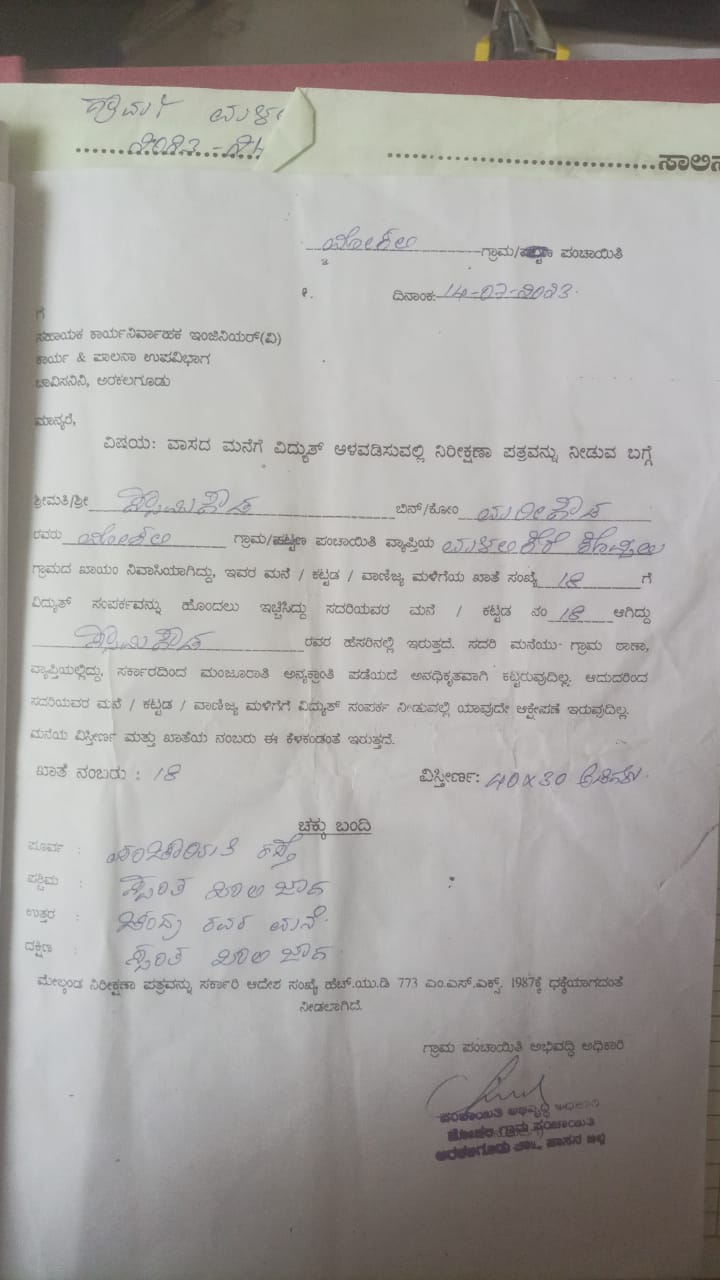 2023-24
ಸಾಲಿನ
ಗ್ರಾಮ/ಪಟ್ಟಣ ಪಂಚಾಯಿತಿ
ದಿನಾಂಕ: 14-07-2023.
ಗೆ
ಸಹಾಯಕ ಕಾರ್ಯನಿರ್ವಾಹಕ ಇಂಜಿನಿಯರ್(ವಿ)
ಕಾರ್ಯ & ಪಾಲನಾ ಉಪವಿಭಾಗ
ಚಾವಿಸನಿನಿ, ಅರಕಲಗೂಡು
ಮಾನ್ಯರೆ,
ವಿಷಯ: ವಾಸದ ಮನೆಗೆ ವಿದ್ಯುತ್ ಅಳವಡಿಸುವಲ್ಲಿ ನಿರೀಕ್ಷಣಾ ಪತ್ರವನ್ನು ನೀಡುವ ಬಗ್ಗೆ
ಶ್ರೀಮತಿ/ಶ್ರೀ ಸ್ವಾಮಿಗೌಡ ಬಿನ್/ಕೋಂ
ರವರು ಗ್ರಾಮ/ಪಟ್ಟಣ ಪಂಚಾಯಿತಿ ವ್ಯಾಪ್ತಿಯ
ಗ್ರಾಮದ ಖಾಯಂ ನಿವಾಸಿಯಾಗಿದ್ದು, ಇವರ ಮನೆ / ಕಟ್ಟಡ / ವಾಣಿಜ್ಯ ಮಳಿಗೆಯ ಖಾತೆ ಸಂಖ್ಯೆ 18 ಗೆ
ವಿದ್ಯುತ್ ಸಂಪರ್ಕವನ್ನು ಹೊಂದಲು ಇಚ್ಚಿಸಿದ್ದು ಸದರಿಯವರ ಮನೆ / ಕಟ್ಟಡ ನಂ 18 ಆಗಿದ್ದು
ಸ್ವಾಮಿಗೌಡ ರವರ ಹೆಸರಿನಲ್ಲಿ ಇರುತ್ತದೆ. ಸದರಿ ಮನೆಯು ಗ್ರಾಮ ಠಾಣಾ,
ವ್ಯಾಪ್ತಿಯಲ್ಲಿದ್ದು, ಸರ್ಕಾರದಿಂದ ಮಂಜೂರಾತಿ ಅನ್ಯಕ್ರಾಂತಿ ಪಡೆಯದೆ ಅನಧಿಕೃತವಾಗಿ ಕಟ್ಟಿರುವುದಿಲ್ಲ. ಆದುದರಿಂದ
ಸದರಿಯವರ ಮನೆ / ಕಟ್ಟಡ / ವಾಣಿಜ್ಯ ಮಳಿಗೆಗೆ ವಿದ್ಯುತ್ ಸಂಪರ್ಕ ನೀಡುವಲ್ಲಿ ಯಾವುದೇ ಆಕ್ಷೇಪಣೆ ಇರುವುದಿಲ್ಲ.
ಮನೆಯ ವಿಸ್ತೀರ್ಣ ಮತ್ತು ಖಾತೆಯ ನಂಬರು ಈ ಕೆಳಕಂಡಂತೆ ಇರುತ್ತದೆ.
ಖಾತೆ ನಂಬರು : 18 ವಿಸ್ತೀರ್ಣ: 40x30 ಅಡಿಗಳು.
ಚಕ್ಕು ಬಂದಿ
ಪೂರ್ವ : ಪಂಚಾಯಿತಿ ರಸ್ತೆ
ಪಶ್ಚಿಮ : ಸ್ವಂತ ಖಾಲಿ ಜಾಗ
ಉತ್ತರ : ಚಂದ್ರು ರವರ ಮನೆ.
ದಕ್ಷಿಣ : ಸ್ವಂತ ಖಾಲಿ ಜಾಗ.
ಮೇಲ್ಕಂಡ ನಿರೀಕ್ಷಣಾ ಪತ್ರವನ್ನು ಸರ್ಕಾರಿ ಆದೇಶ ಸಂಖ್ಯೆ ಹೆಚ್.ಯು.ಡಿ 773 ಎಂ.ಎಸ್.ಎಕ್ಸ್. 1987ಕ್ಕೆ ಧಕ್ಕೆಯಾಗದಂತೆ
ನೀಡಲಾಗಿದೆ.
ಗ್ರಾಮ ಪಂಚಾಯಿತಿ ಅಭಿವೃದ್ಧಿ ಅಧಿಕಾರಿ
ಪಂಚಾಯಿತಿ ಅಭಿವೃದ್ಧಿ ಅಧಿಕಾರಿ
ಗ್ರಾಮ ಪಂಚಾಯಿತಿ
ಅರಕಲಗೂಡು ತಾ., ಹಾಸನ ಜಿಲ್ಲೆ